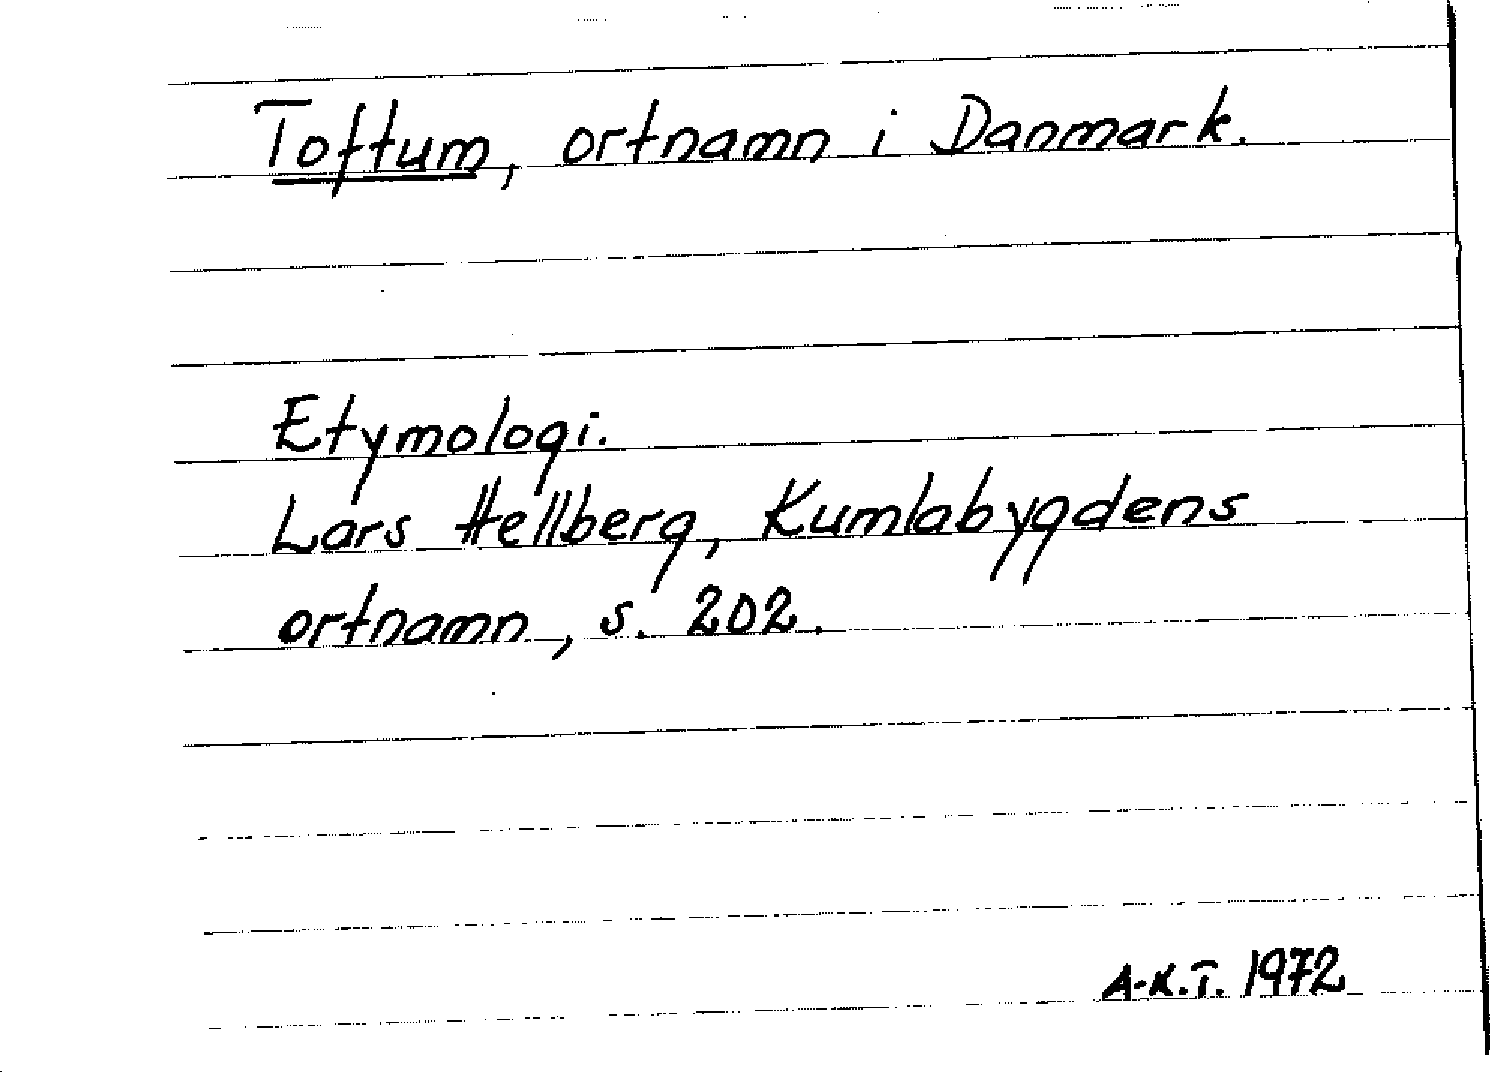 Toftum, ortnamn i Danmark.
Etymologi.
Lars Hellberg, Kumlabygdens
ortnamn, s. 202.
A-K.T. 1972